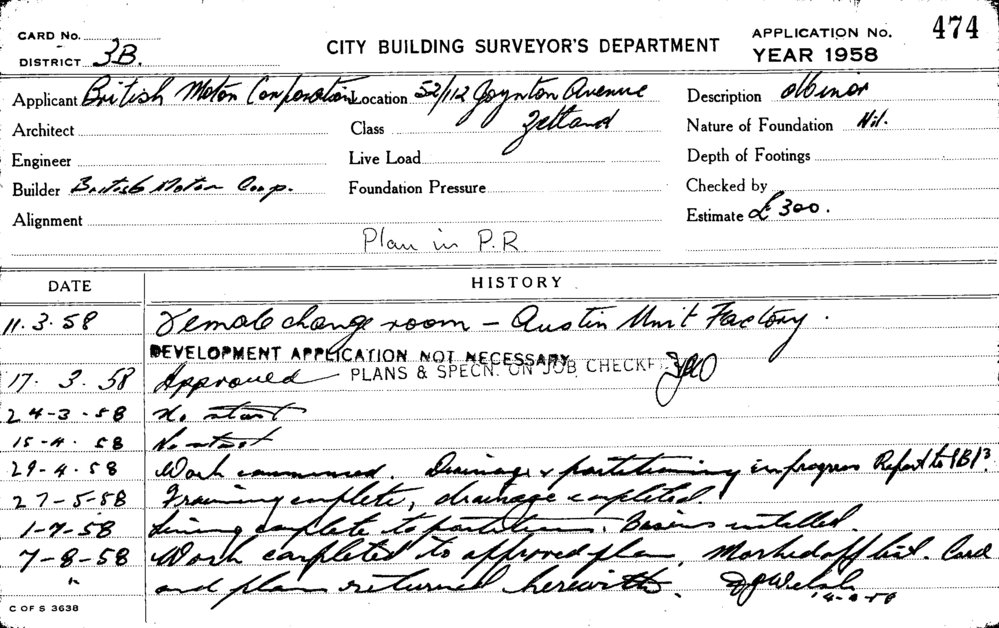 CARD No.
DISTRICT 3B.
CITY BUILDING SURVEYOR'S DEPARTMENT
APPLICATION No. 474
YEAR 1958
Applicant British Motor Corporation Location 52/112 Joynton Avenue Description Minor
Architect Class Zetland Nature of Foundation Nil.
Engineer Live Load Depth of Footings
Builder British Motor Corp. Foundation Pressure Checked by
Alignment Estimate £300.
Plan in P.R
DATE HISTORY
11.3.58 Female change room - Austin Unit Factory.
DEVELOPMENT APPLICATION NOT NECESSARY
17.3.58 Approved PLANS & SPECN. ON JOB CHECKE
24-3-58 No start
15-4.58 No start
29-4.58 Work commenced. Drainage & partitioning in progress Report to
27-5-58 Framing complete, drainage completed.
1-7-58 Lining complete to partitions. Basins installed.
7-8-58 Work completed to approved plan, Marked off list. Card
" and plan returned herewith. Welsh
C OF S 3638